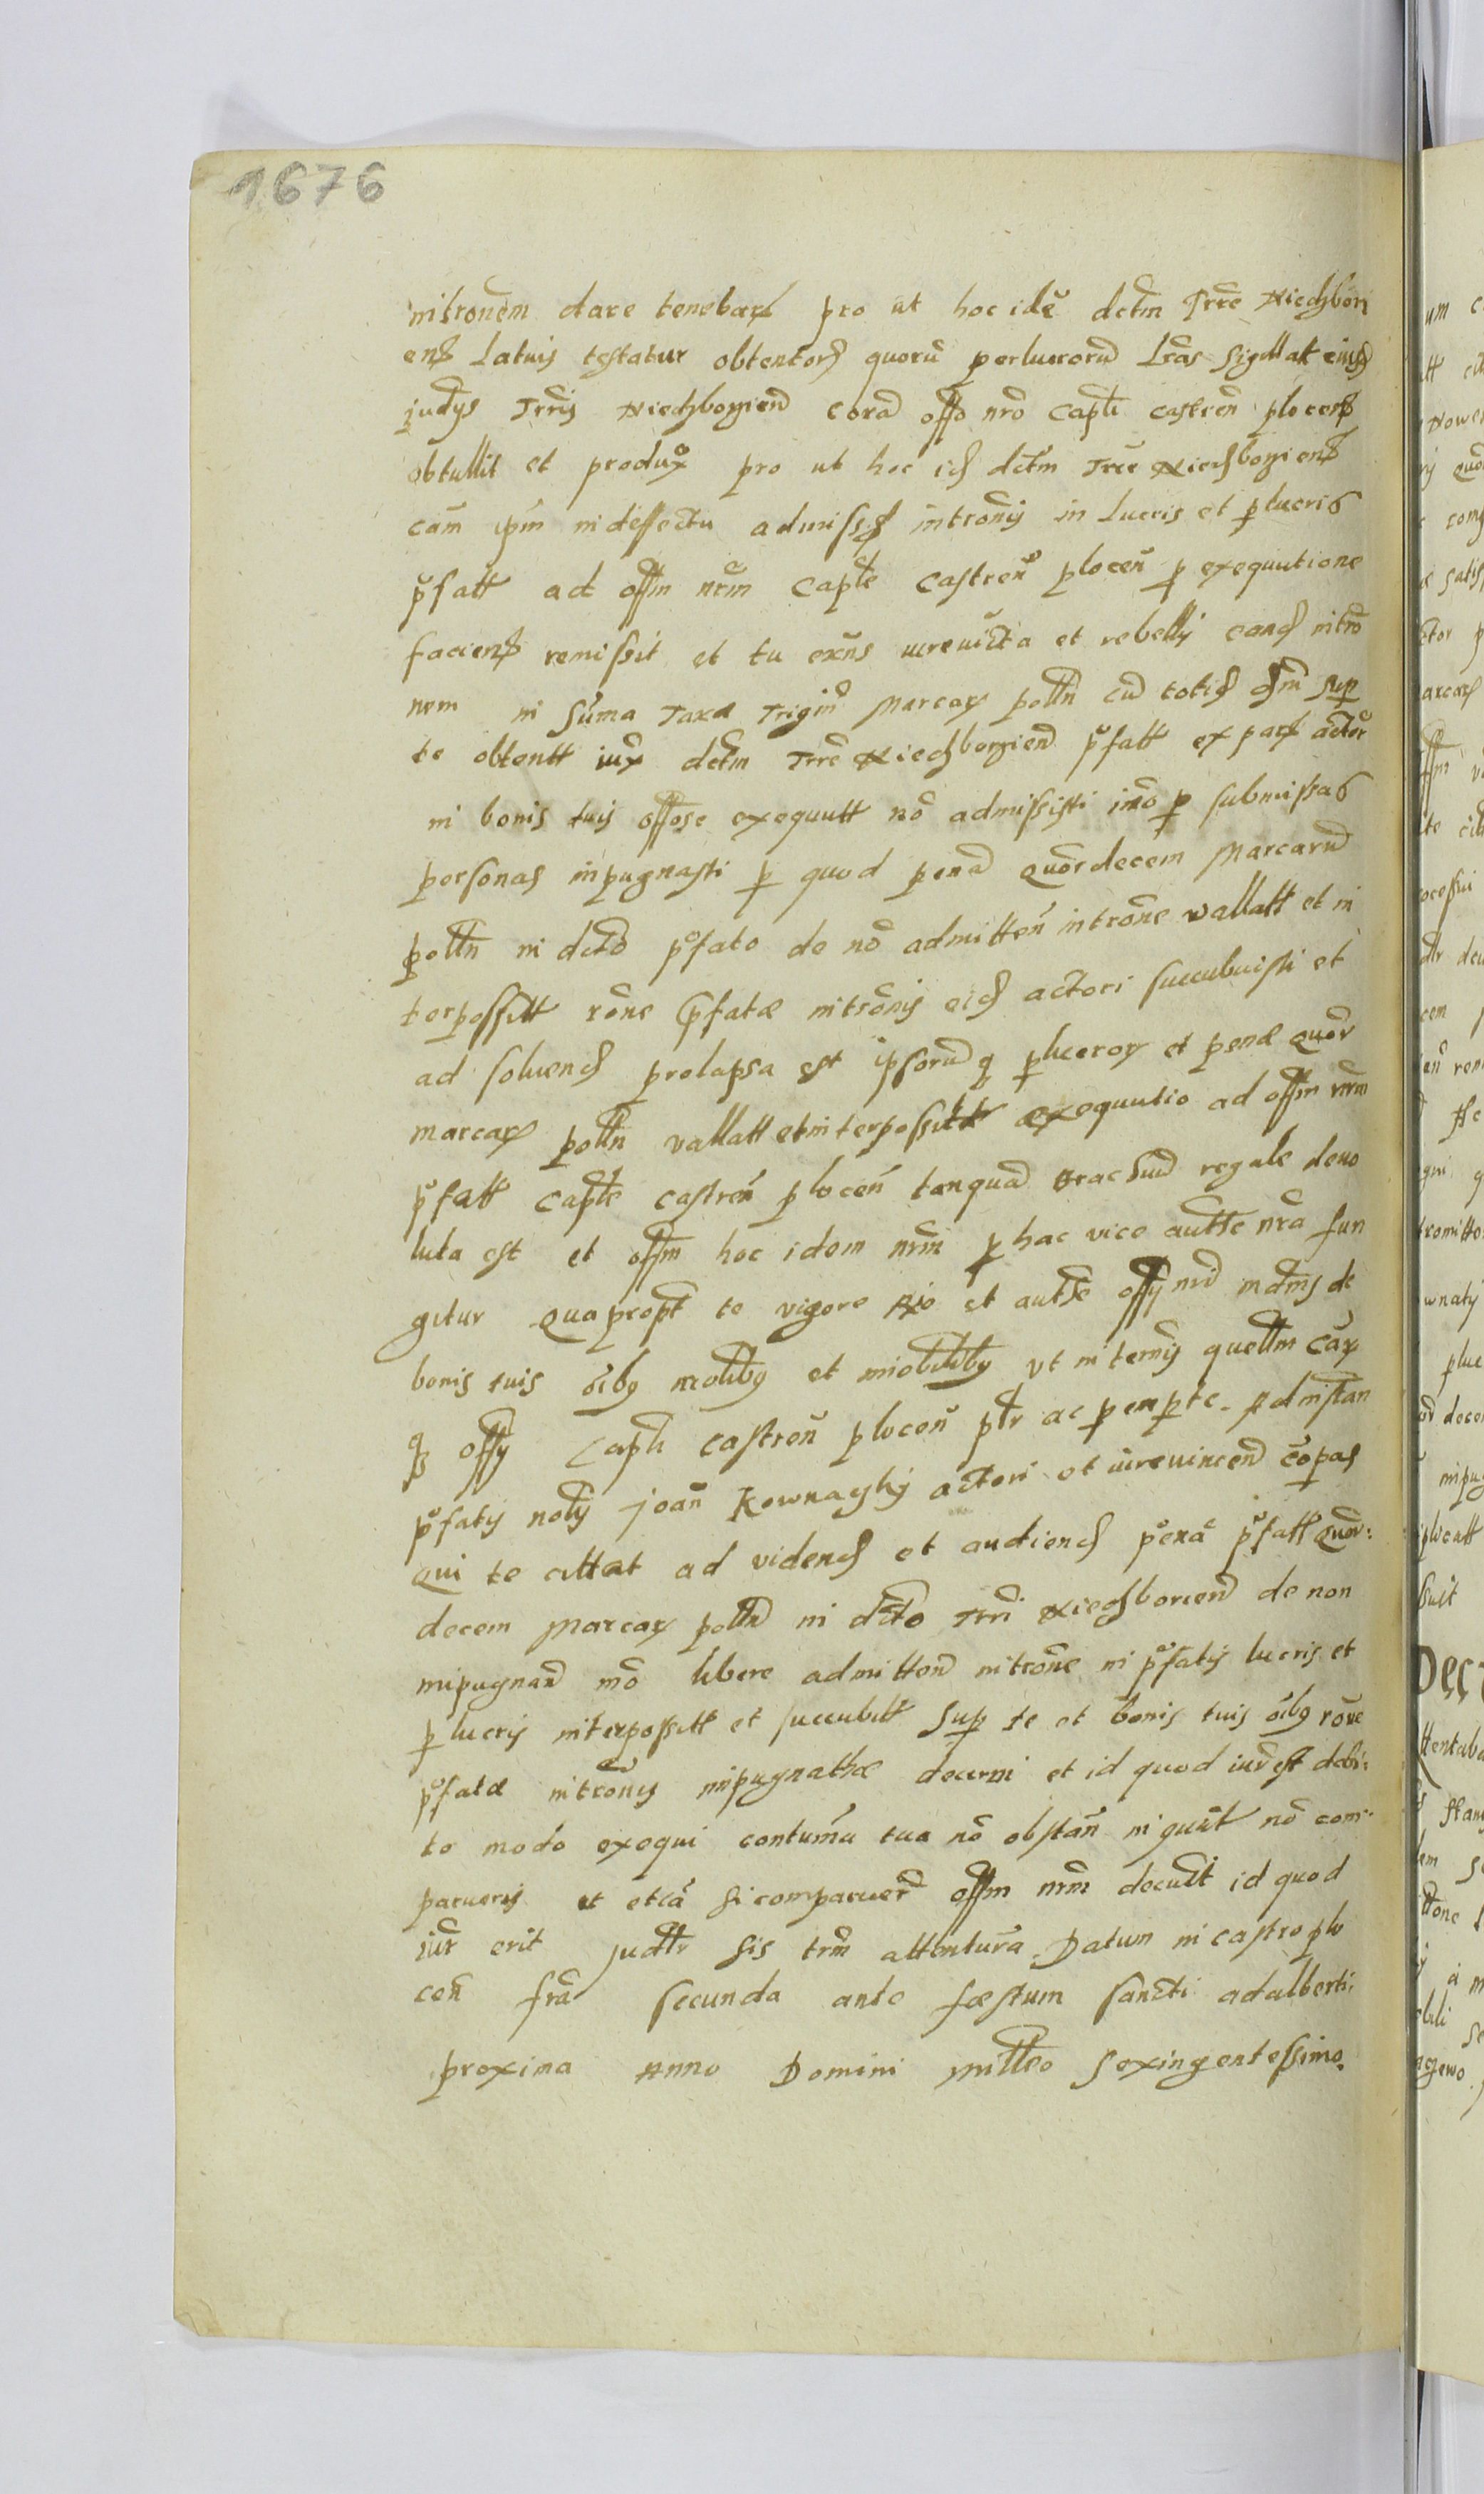 1676
intronem dare tenebar pro ut hoc idē dctm Trre Niedzbori
en Latuis testatur obtentor quorū perlucrorū Lras sigillat eiusd
judys Trris Niedzbogien corā offo nro capli castren plocen
obtullit et produx pro ut hoc id dctm Trre Niedzbogien
cām ipm in deffectu admiss intronis in lucris et plucris
pfatt ad offm nrm caple castren plocen p exequutione
faciens remissit et tu exns iurevicta et rebellis eand intro
nem in suma Taxa Trigin Marcar polln cū totid sup
te obtentt iux dctm Trre Niedzbogien pfatt ex part actor
in bonis tuis offose exequutt nō admissisti imo p submissas
personas inpugnasti p quod penā quordecem Marcarū
polln in dcto pfato de nō admitten introne vallatt et in
terpossitt rone pfatæ intronis eid actori succubuisti et
ad soluend prolapsa est ipsorūq plucror et penæ quor
marcar polln vallatt et interpossitt exequutio ad offm nrm
pfatt caple castren plocen tanquā brachiū regale devo
luta est et offm hoc idem nrm p hac vice autte nra fun
gitur Quapropt te vigore et autte offy nri mdms de
bonis tuis oibq mobibq et imobilibq ut in termis quellm car
q offy Capli castren plocen plr ac pempte Ad instan
pfatis nobis Joan Kownaczky actori et iurevincen compas
Qui te cittat ad videnđ et audienđ pena pfatt quor:
decem Marcar polln in dcto Trri Niedzborien de non
inpugnan mō libere admitten introne in pfatis lucris et
plucris interpossitt et succubitt sup te et bonis tuis oibq rone
pfatæ intronis inpugnathæ decerni et id quod iur est debi:
to modo exequi contuma tua nō obstan in quat nō com:
parueris et etiā si comparuer offm nrm decerit id quod
iur erit Judtr sis trm attentura Datum in castro plo
cen fra secunda ante fæstum sancti adalberti
proxima Anno Domini milleo sexingentessimo